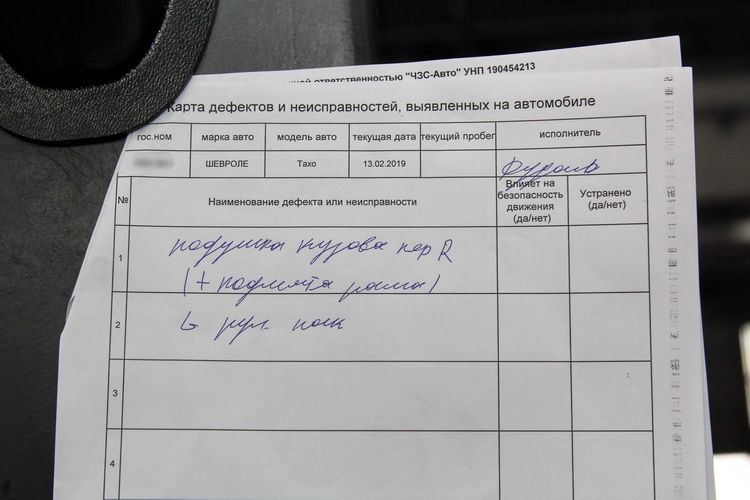 ной ответственностью "ЧЗС-Авто" УНП 190454213
Карта дефектов и неисправностей, выявленных на автомобиле
гос.ном марка авто модель авто текущая дата текущий пробег исполнитель
ШЕВРОЛЕ Тахо 13.02.2019
№ Наименование дефекта или неисправности Влияет на безопасность движения (да/нет) Устранено (да/нет)
1 подушка кузова пер R
(+ подмята рама)
2 рул.
3
4